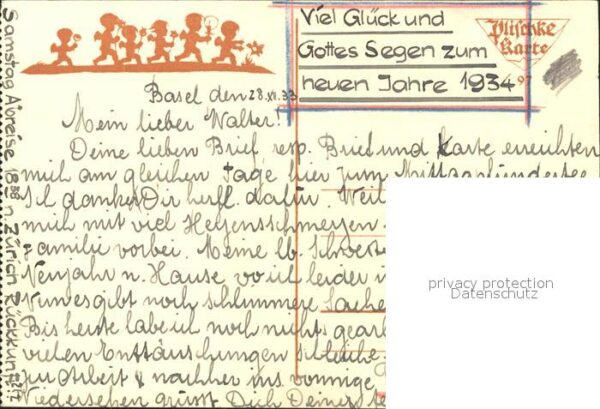 Viel Glück und
Gottes Segen zum
neuen Jahre 1934
Plischke
Karte
Basel den 28.XII.33
Mein lieber Walter!
Deine lieben Brief resp. Brief und Karte erreichten
mich am gleichen Tage hier zum
Ich danke Dir herzl. dafür. Weil
mich mit viel
Familie vorbei. Meine lb. Schwester
Neujahr n. Hause wo ich leider
Nun es gibt noch schlimmere Sache
Bis heute habe ich noch nichts gearb
vielen Enttäuschungen
zu Arbeit & nachher ins
Wiedersehen grüsst Dich Deine
Samstag Abreise 18 n. Zürich Rückkunft
privacy protection
Datenschutz